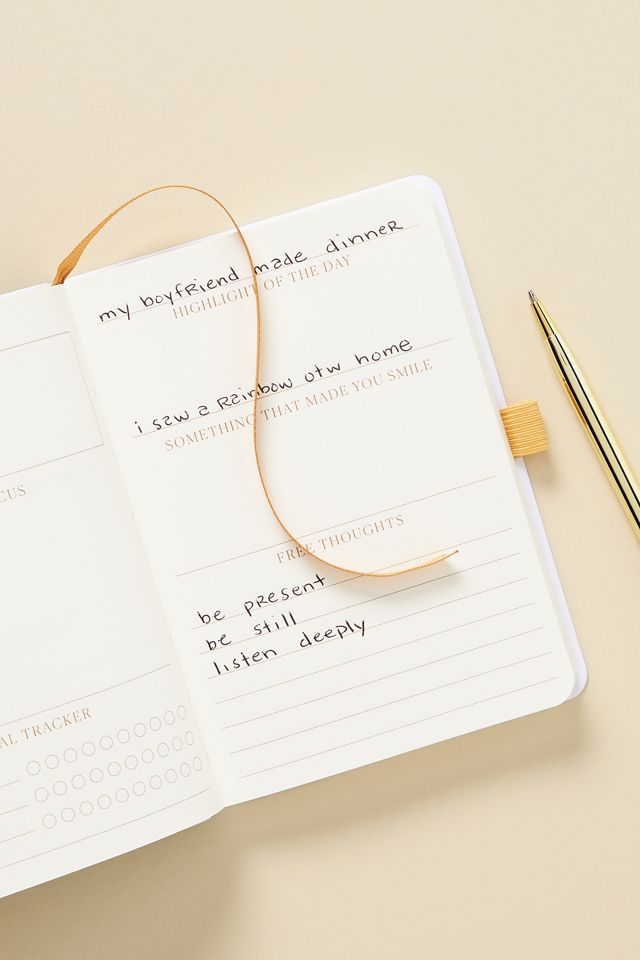 CUS
AL TRACKER
my boyfriend made dinner
HIGHLIGHT OF THE DAY
i saw a Rainbow otw home
SOMETHING THAT MADE YOU SMILE
FREE THOUGHTS
be present
be still
listen deeply